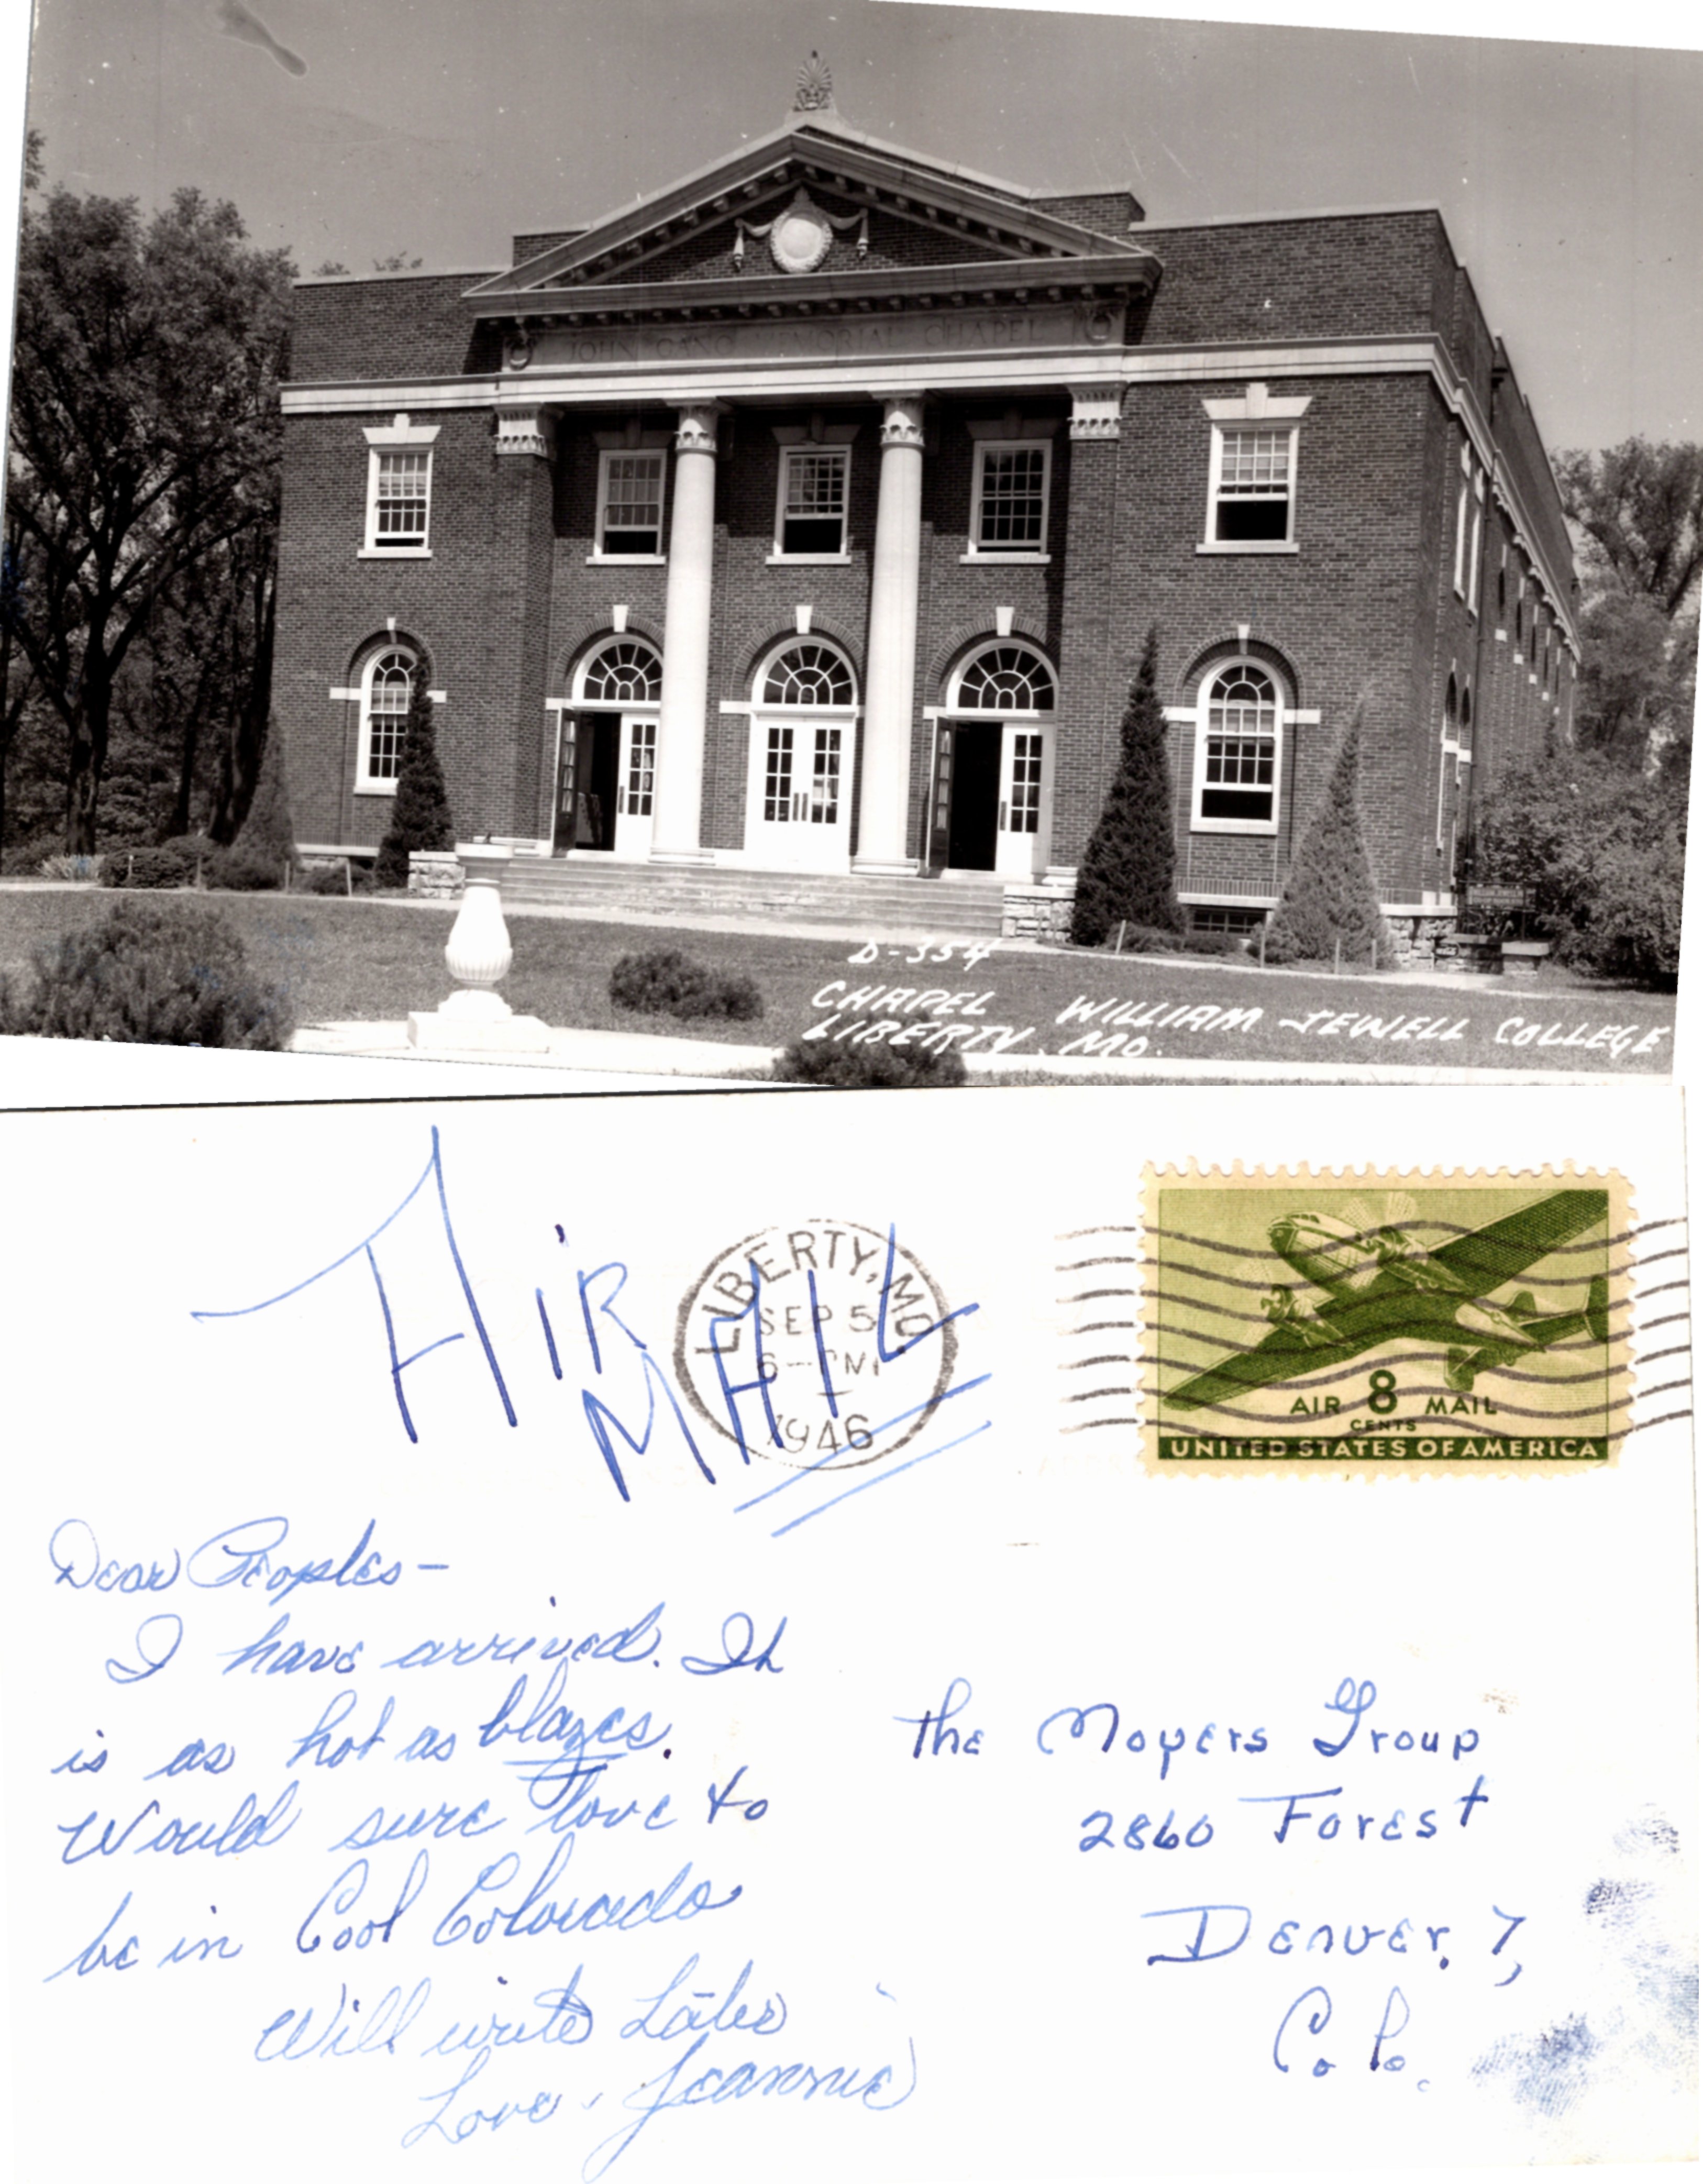 JOHN GANO MEMORIAL CHAPEL
D-354
CHAPEL WILLIAM JEWELL COLLEGE
LIBERTY, MO.
AiR
MAIL
LIBERTY, MO.
SEP 5
6-PM
1946
AIR 8 MAIL
CENTS
UNITED STATES OF AMERICA
Dear Peoples-
I have arrived. It
is as hot as blazes.
Would sure love to
be in Cool Colorado
Will write Later
Love, Jeannie
The Moyers Group
2860 Forest
Denver, 7,
Colo.